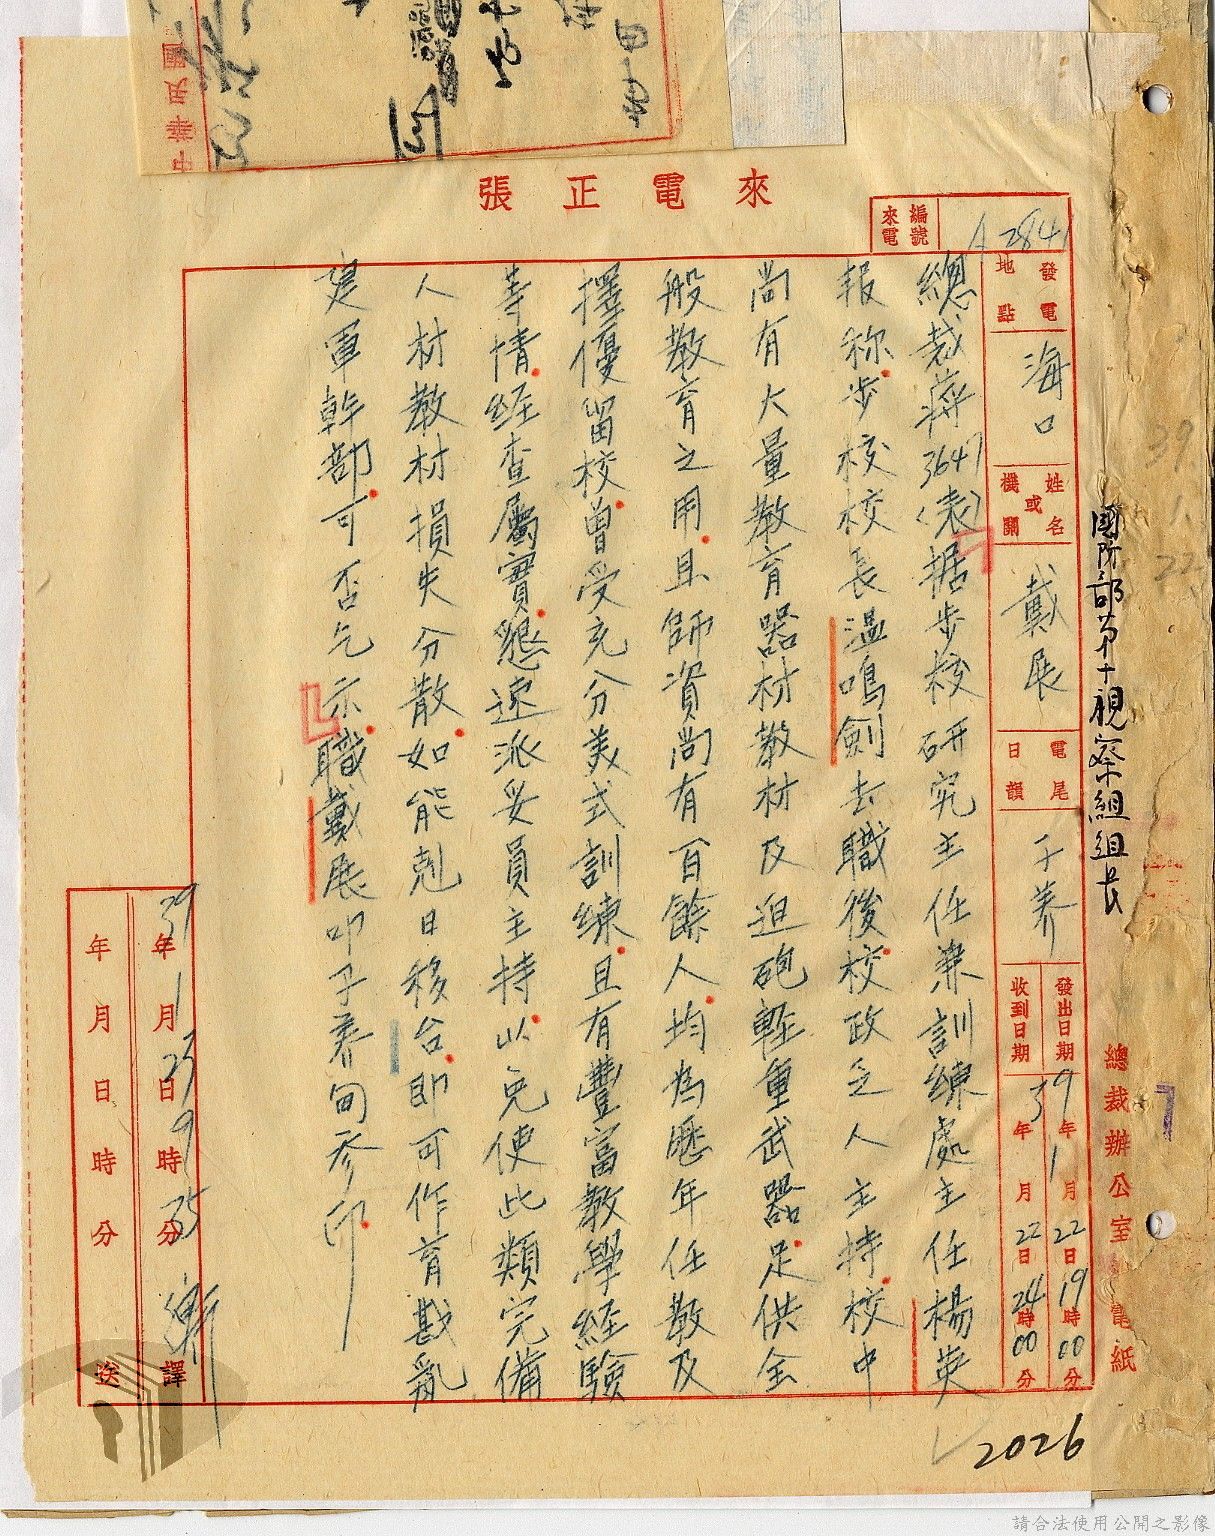 來電正張
來電編號
A 2841
發電地點
海口
姓名或機關
戴展
電尾日韻
子養
發出日期 39年1月22日19時00分
收到日期 39年1月22日24時00分
國防部第十視察組組長
總裁辦公室電紙
39. 1. 22
總裁蔣3647(表)据步校研究主任兼訓練處主任楊英
報称步校校長温鳴劍去職後校政乏人主持校中
尚有大量教育器材教材及迫砲輕重武器足供全
般教育之用且師資尚有百餘人均為歷年任教及
擇優留校曾受充分美式訓練且有豐富教學経驗
等情経查屬實懇速派妥員主持以免使此類完備
人材教材損失分散如能剋日移台即可作育戡亂
建軍幹部可否乞示職戴展叩子養甸参印
39年1月23日9時35分 譯
年月日時分 送
2026
中華民國
請合法使用公開之影像